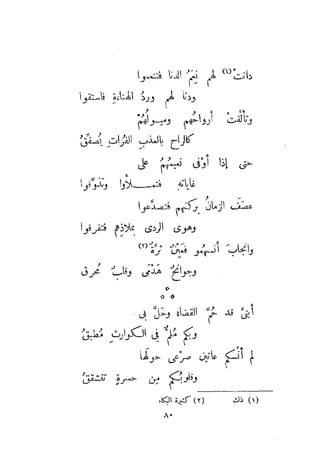 دانت (١) لهم نعم الدنا فتنعموا
ودنا لهم وردُ الهناءةِ فاستقوا
وتألّفت أرواحهم وميولُهُمْ
كالراحِ بالعذبِ الفراتِ يُصفَّقُ
حتى إذا أوْفى نعيمُهُم على
غاياته فتمـلأوا وتذوَّقوا
عصَفَ الزمانُ بركنهم فتصدّعوا
وهوى الردى بملاذهم فتفرقوا
وانجابَ أنسهمو فعينٌ ثرَّةٌ (٢)
وجوانحٌ هَدْمَى وقلبٌ مُحرق
أبنىَّ قد حُمَّ القضاء وحلَّ بى
وبكم مُلِمٌّ فى الكوارثِ مُطبقُ
لم أنسكم عانين صرْعى حولها
وقلوبُكم مِن حسرةٍ تتشقّقُ
(١) ذلت (٢) كثيرة البكاء
٨٠